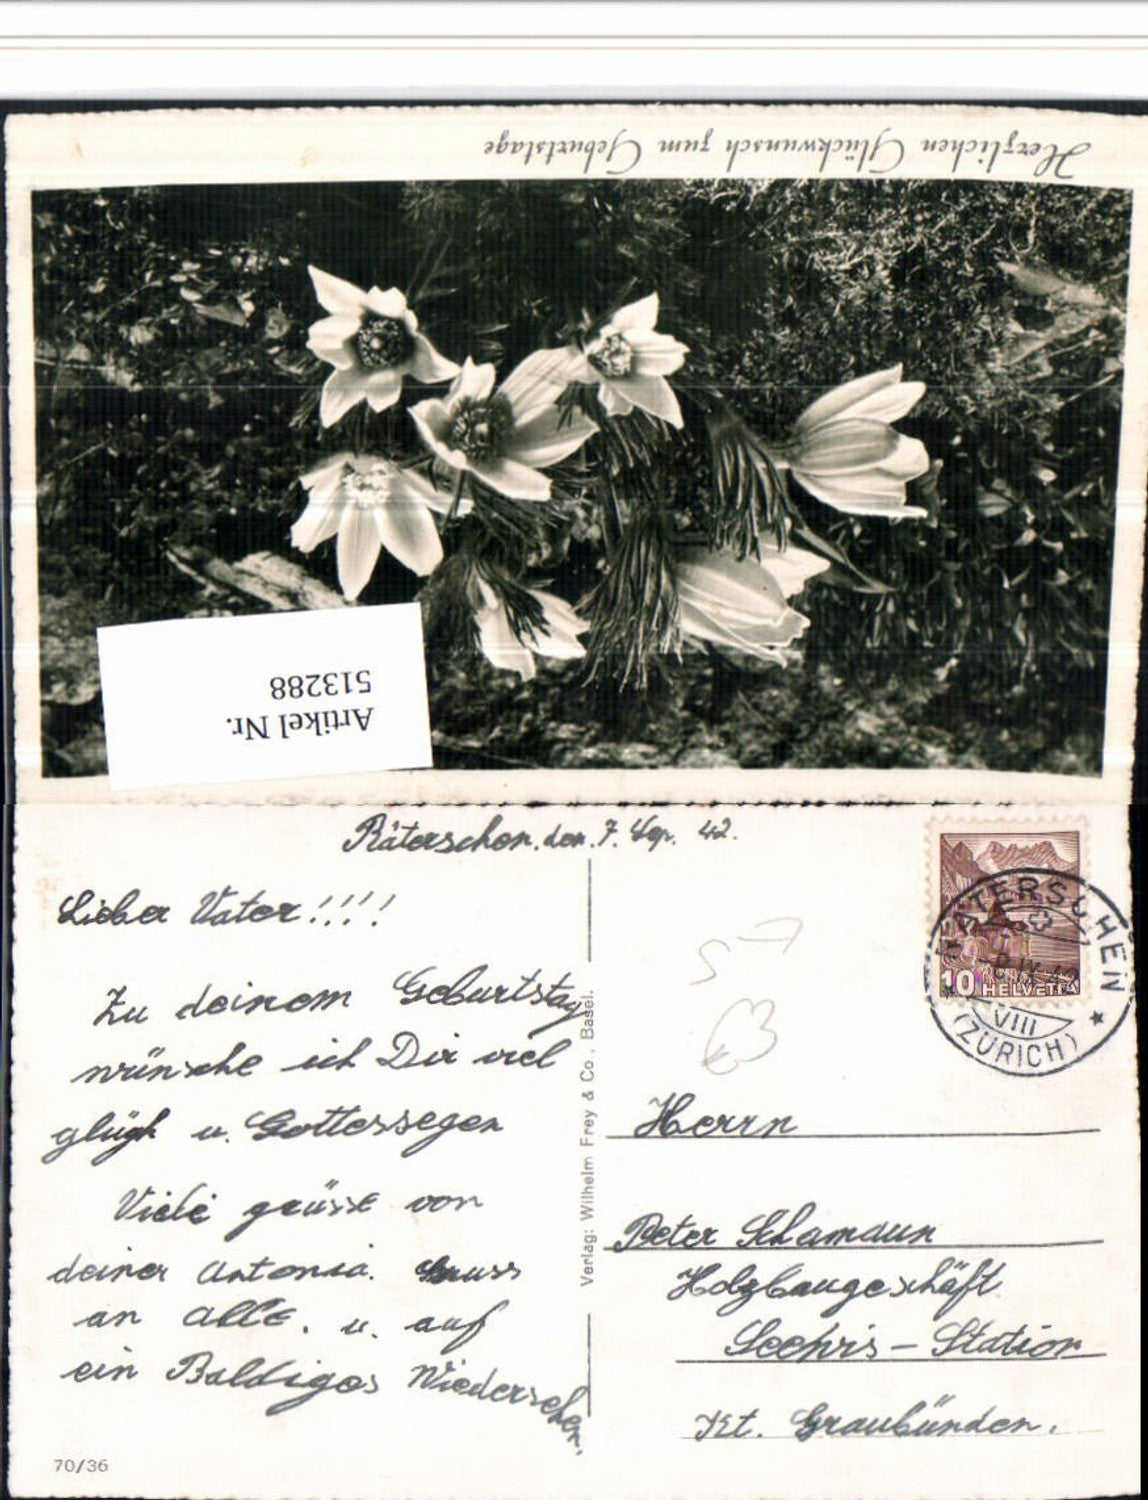 Herzlichen Glückwunsch zum Geburtstage
Artikel Nr.
513288
Räterschen, den 7. Sep. 42.
Lieber Vater!!!!
Zu deinem Geburtstag
wünsche ich Dir viel
glügk u. Gottessegen
Viele grüsse von
deiner Antonia. Gruss
an alle. u. auf
ein Baldiges Wiedersehen.
70/36
Verlag: Wilhelm Frey & Co., Basel.
10 HELVETIA
RÄTERSCHEN
IX 42
VIII
(ZÜRICH)
57
Herrn
Peter Schamaun
Holzbaugeschäft
Seewis - Station
Kt. Graubünden.